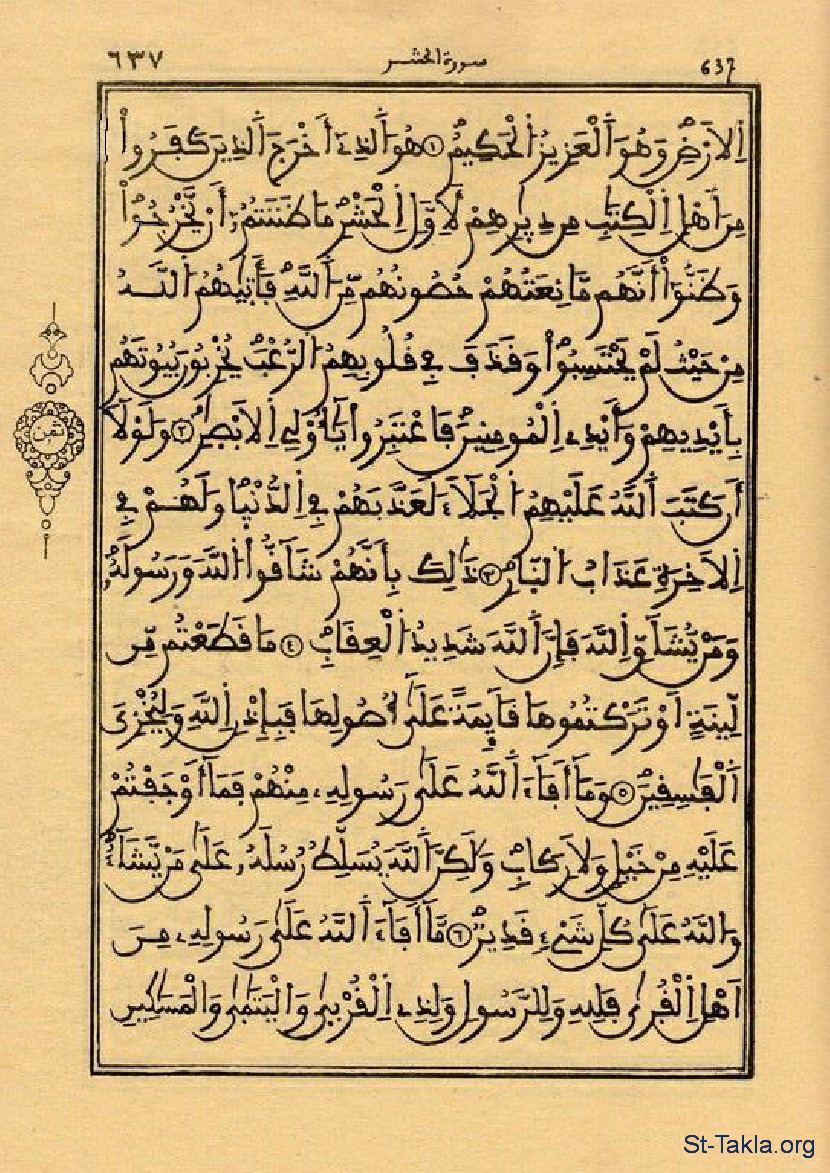 ٦٣٧ سورة الحشر 637
اِلَارْضِ وَهُوَ اَلْعَزِيزُ اُلْحَكِيمُ ١ هُوَ اَلذِےٓ أَخْرَجَ اَلذِينَ كَفَرُواْ
مِنَ اَهْلِ اِلْكِتَٰبِ مِن دِيٰ۪رِهِمْ لِأَوَّلِ اِلْحَشْرِ مَا ظَنَنتُمُۥٓ أَنْ يَّخْرُجُواْ
وَظَنُّوٓاْ أَنَّهُم مَّانِعَتُهُمْ حُصُونُهُم مِّنَ اَللَّهِ فَأَت۪يٰهُمُ اُللَّهُ
مِنْ حَيْثُ لَمْ يَحْتَسِبُواْ وَقَذَفَ فِے قُلُوبِهِمُ اُلرُّعْبَ يُخْرِبُونَ بُيُوتَهُم
بِأَيْدِيهِمْ وَأَيْدِے اِلْمُومِنِينَ فَاعْتَبِرُواْ يَٰٓأُوْلِے اِلَابْصٰ۪رِ ٢ وَلَوْلَآ
أَن كَتَبَ اَللَّهُ عَلَيْهِمُ اُلْجَلَآءَ لَعَذَّبَهُمْ فِے اِلدُّنْي۪ا وَلَهُمْ فِے
اِلَاخِرَةِ عَذَابُ اُلنّ۪ارِ ٣ ذَٰلِكَ بِأَنَّهُمْ شَآقُّواْ اُللَّهَ وَرَسُولَهُۥ
وَمَنْ يُّشَآقِّ اِللَّهَ فَإِنَّ اَللَّهَ شَدِيدُ اُلْعِقَابِ ٤ مَا قَطَعْتُم مِّن
لِّينَةٍ اَوْ تَرَكْتُمُوهَا قَآئِمَةً عَلَىٰٓ أُصُولِهَا فَبِإِذْنِ اِللَّهِ وَلِيُخْزِيَ
اَلْفَٰسِقِينَ ٥ وَمَآ أَفَآءَ اَللَّهُ عَلَىٰ رَسُولِهِۦ مِنْهُمْ فَمَآ أَوْجَفْتُمْ
عَلَيْهِ مِنْ خَيْلٍ وَلَا رِكَابٍ وَلَٰكِنَّ اَللَّهَ يُسَلِّطُ رُسُلَهُۥ عَلَىٰ مَنْ يَّشَآءُ
وَاللَّهُ عَلَىٰ كُلِّ شَےْءٍ قَدِيرٌ ٦ مَّآ أَفَآءَ اَللَّهُ عَلَىٰ رَسُولِهِۦ مِنَ
اَهْلِ اِلْقُر۪ىٰ فَلِلهِ وَلِلرَّسُولِ وَلِذِے اِلْقُرْب۪ىٰ وَالْيَتَٰم۪ىٰ وَالْمَسَٰكِينِ
ثمن
St-Takla.org